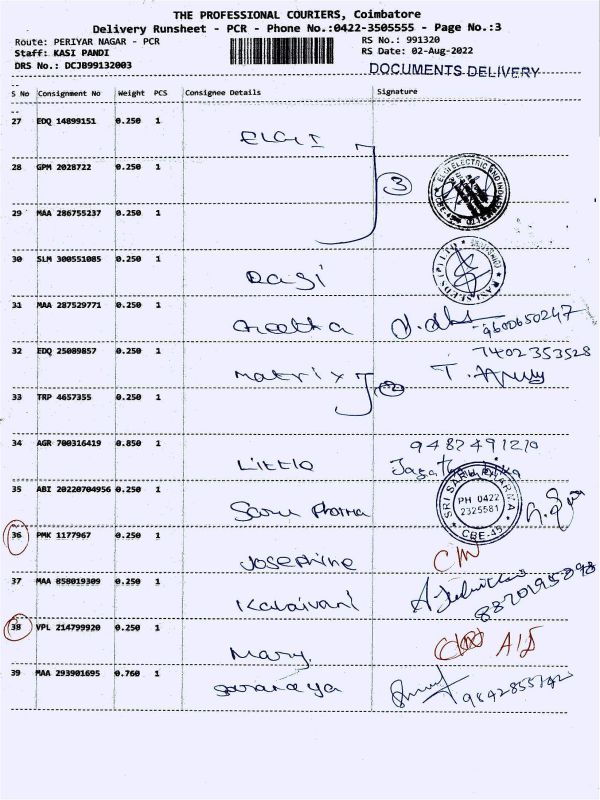 THE PROFESSIONAL COURIERS, Coimbatore
Delivery Runsheet - PCR - Phone No.:0422-3505555 - Page No.:3
Route: PERIYAR NAGAR - PCR RS No.: 991320
Staff: KASI PANDI RS Date: 02-Aug-2022
DRS No.: DCJB99132003 DOCUMENTS DELIVERY
S No Consignment No Weight PCS Consignee Details Signature
27 EDQ 14899151 0.250 1
ELGI
28 GPM 2028722 0.250 1
3
29 MAA 286755237 0.250 1
30 SLM 300551085 0.250 1
Rasi
31 MAA 287529771 0.250 1
Geetha 9600650247
32 EDQ 25089857 0.250 1 7402353528
Matrix 2
33 TRP 4657355 0.250 1
34 AGR 700316419 0.850 1
Little
35 ABI 20220704956 0.250 1 SRI SARU PHARMA PH 0422 2325581 CBE-45
Saru Pharma
36 PMK 1177967 0.250 1
Josephine
37 MAA 858019309 0.250 1
Kalaivani
38 VPL 214799920 0.250 1
Mary
39 MAA 293901695 0.760 1
Saranaya